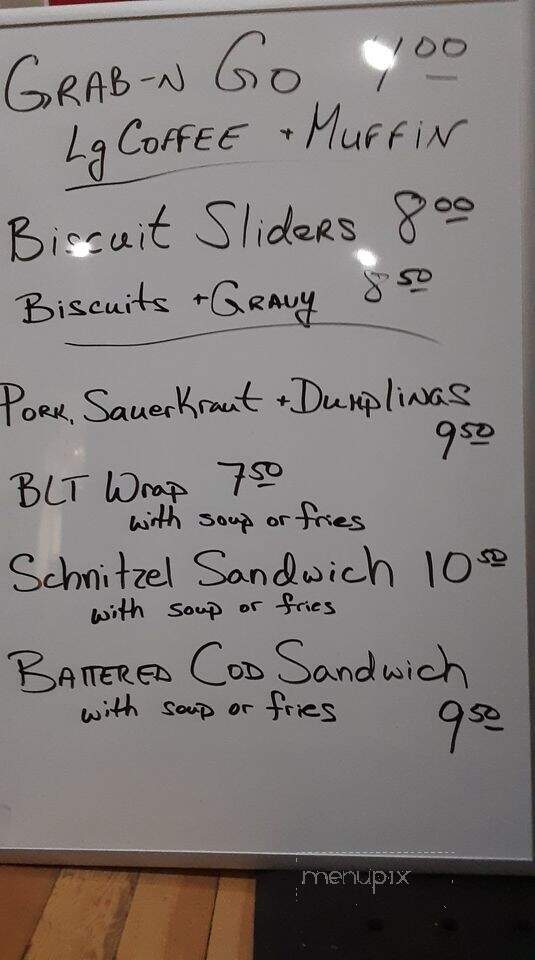 GRAB-N GO 4 00
Lg COFFEE + MUFFIN
Biscuit Sliders 8 00
Biscuits + GRAVY 8 50
PORK, Sauerkraut + DUMPLINGS
9 50
BLT Wrap 7 50
with soup or fries
Schnitzel Sandwich 10 50
with soup or fries
BATTERED COD Sandwich
with soup or fries 9 50
menupix